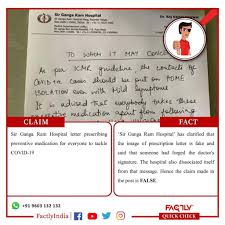 Sir Ganga Ram Hospital
TO WHOM IT MAY CONCERN
As per ICMR guideline the contacts of
COVID19 cases should be put on HOME
ISOLATION even with Mild symptoms
It is advised that everybody takes these
preventive medication apart from following
CLAIM
FACT
Sir Ganga Ram Hospital letter prescribing
preventive medication for everyone to tackle
COVID-19
'Sir Ganga Ram Hospital' has clarified that
the image of prescription letter is fake and
said that someone had forged the doctor's
signature. The hospital also dissociated itself
from this message. Hence the claim made in
the post is FALSE.
+91 9603 132 132
FactlyIndia
FACTLY
QUICK CHECK